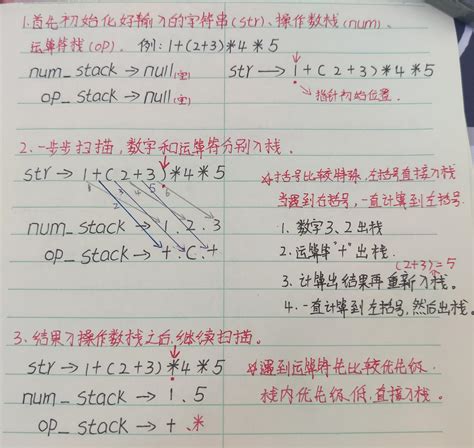 1.首先初始化好输入的字符串(str)、操作数栈(num)、
运算符栈(op)。例:1+(2+3)*4*5
num_stack → null(空)
str → 1+(2+3)*4*5
op_stack → null(空)
指针初始位置.
2.一步步扫描,数字和运算符分别入栈.
str → 1+(2+3)*4*5
1 2 3 4 5 6
num_stack → 1.2.3
op_stack → +.(.+
*括号比较特殊,左括号直接入栈
当遇到右括号,一直计算到左括号.
1.数字3、2出栈
2.运算符"+"出栈.
(2+3)=5
3.计算出结果再重新入栈.
4.一直计算到左括号,然后出栈.
3.结果入操作数栈之后,继续扫描。
str → 1+(2+3)*4*5
num_stack → 1.5
op_stack → +.*
*遇到运算符先比较优先级.
栈内优先级低,直接入栈。